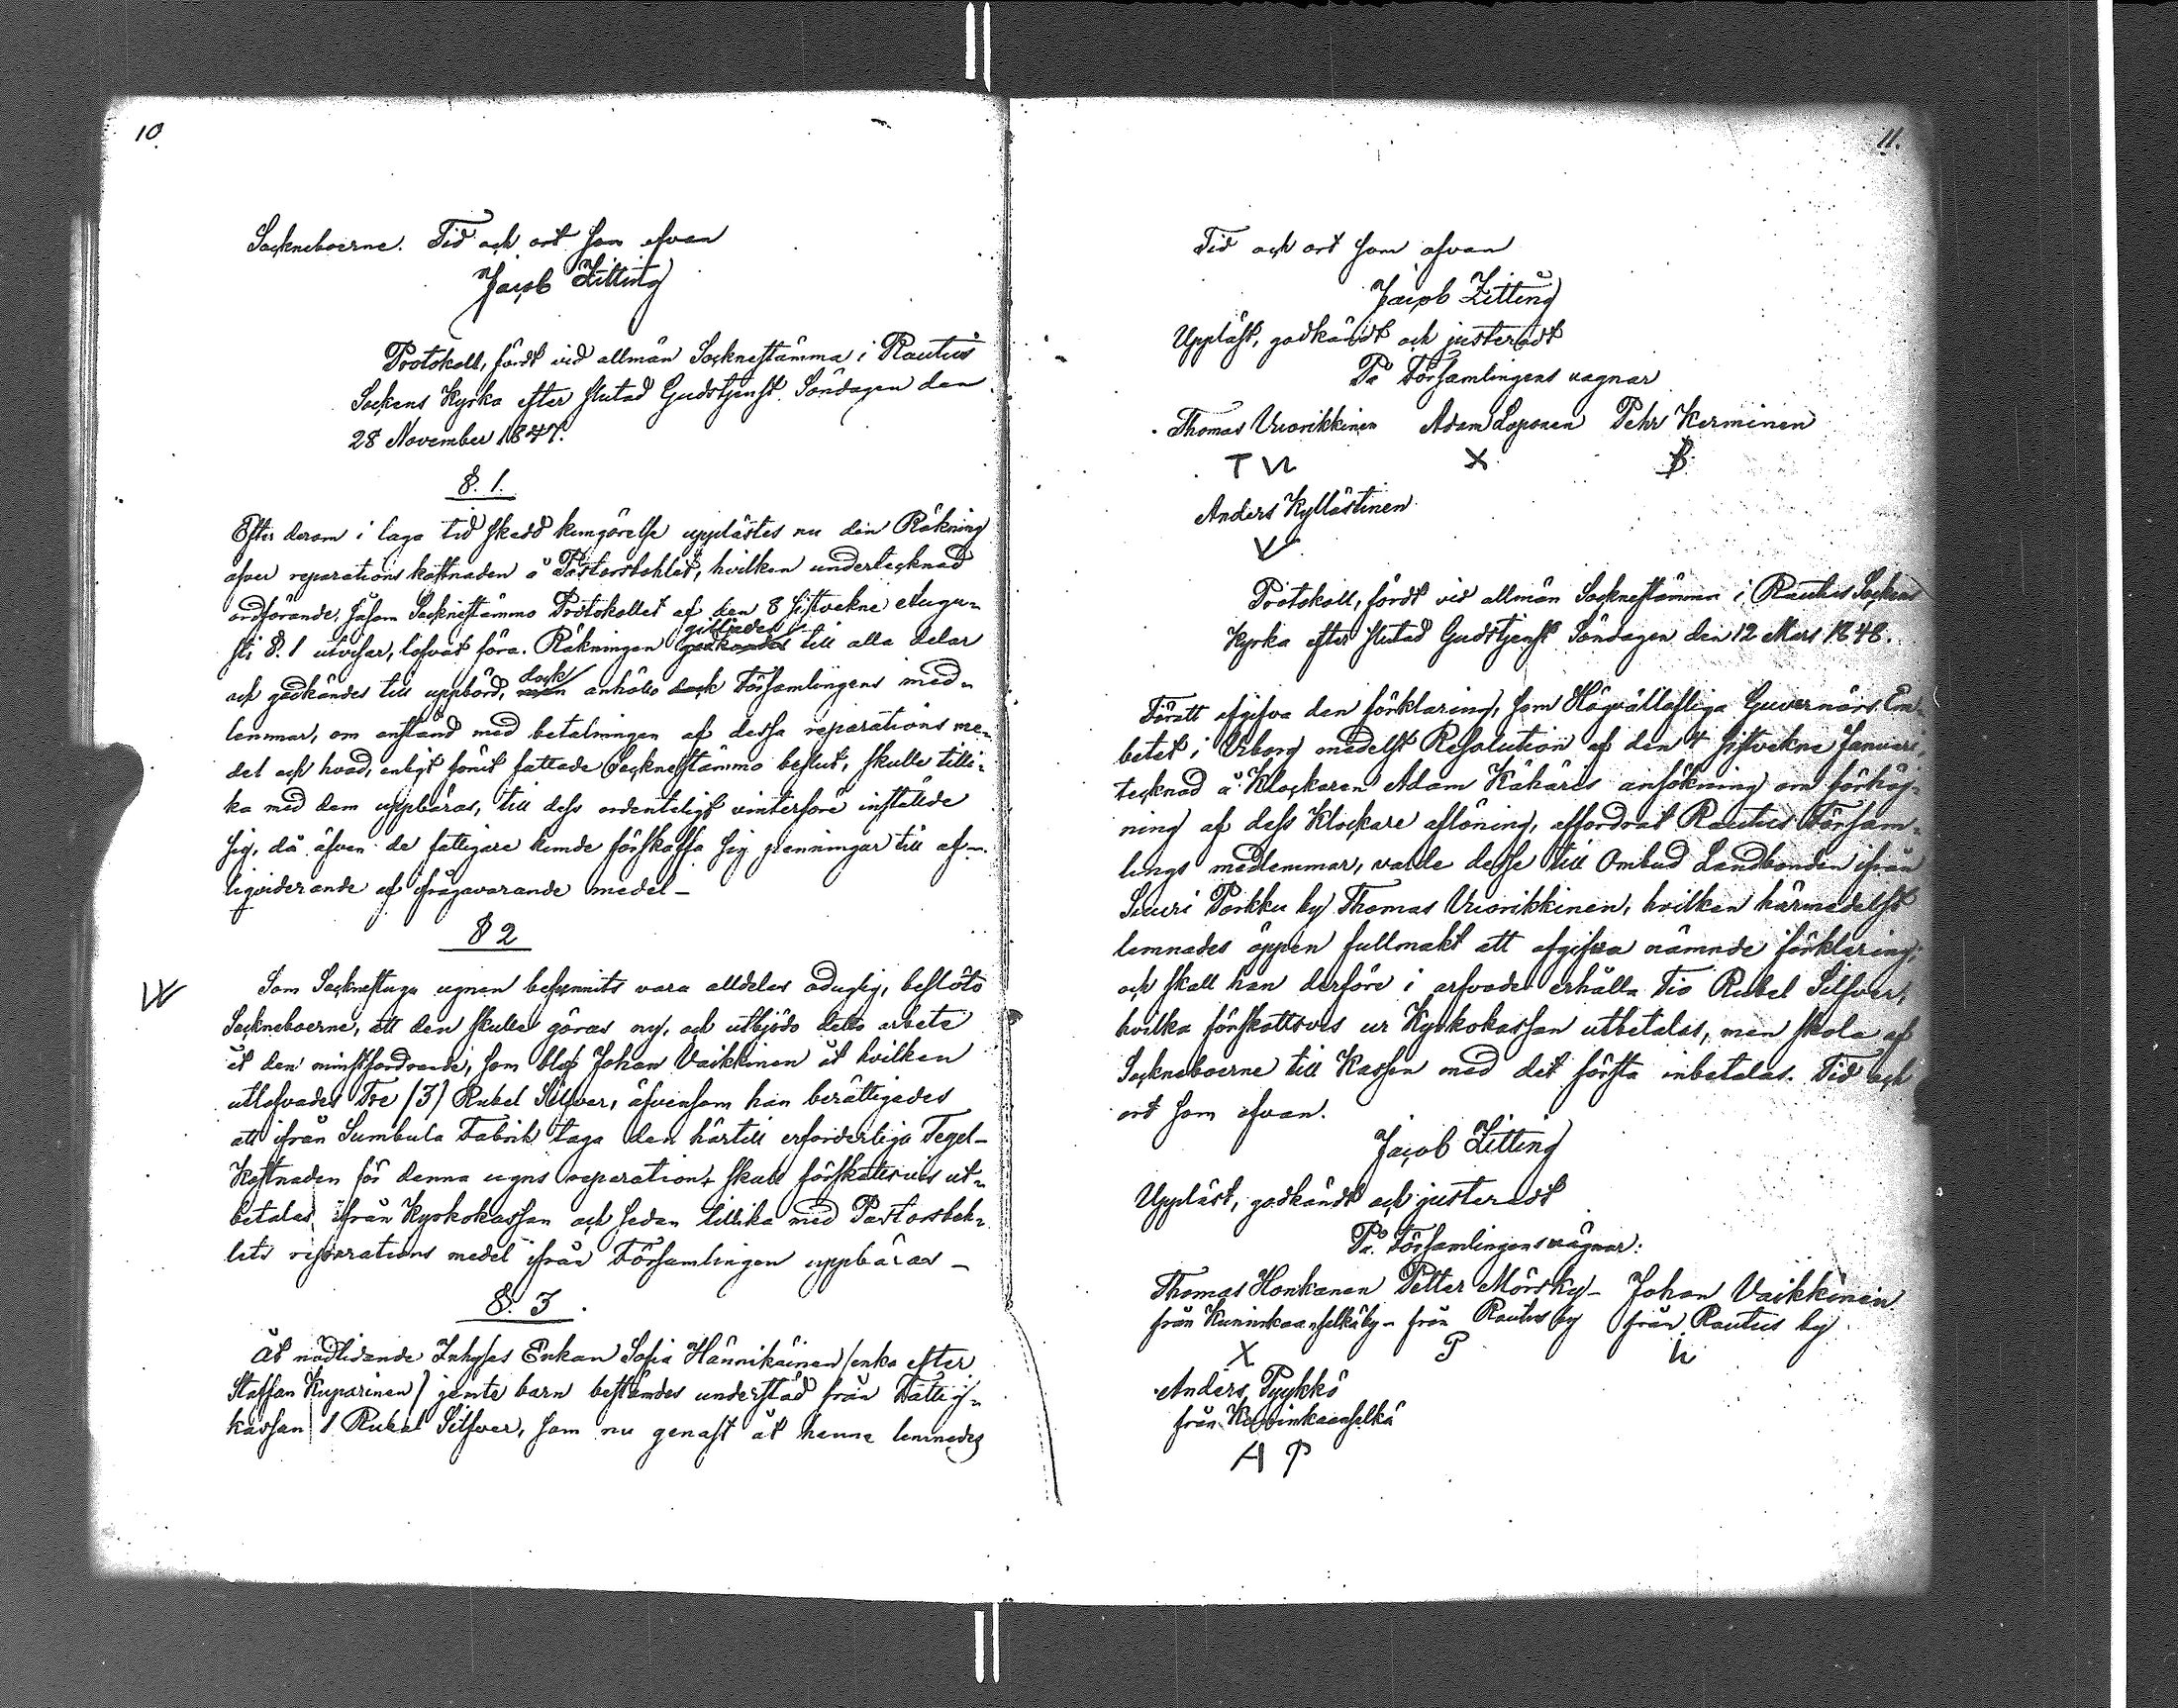 10.
Sockneboerne. Tid och ort som ofvan
Jacob Zitting
Protokoll, fördt vid allmän Socknestämma i Rautus
Sockens Kyrka efter slutad Gudstjenst Söndagen den
28 November 1847.
§. 1.
Efter derom i laga tid skedd kungörelse upplästes nu den Räkning
öfver reparations kostnaden å Pastorsbohlet, hvilken undertecknad
ordförande, såsom Socknestämmo Protokollet af den 8 sistvekne Augu-
sti §. 1 utvisar, lofvat föra. Räkningen godkändes gilljades till alla delar
och godkändes till uppbörd, men dock anhöllo dock Församlingens med-
lemmar, om anstånd med betalningen af dessa reparations me-
del och hvad, enligt förut fattade Socknestämmo beslut, skulle tilli-
ka med dem uppbäras, till dess ordenteligt vinterföre inställde
sig, då äfven de fattigare kunde förskaffa sig penningar till af-
liqviderande af ifrågavarande medel -
§ 2
Som Sockenstugu ugnen befunnits vara alldeles oduglig, beslöto
Sockneboerne, att den skulle göras ny, och utbjöds detta arbete
åt den minstfordrande, som blef Johan Vaikkinen åt hvilken
utlofvades Tre (3) Rubel Silfver, äfvensom han berättigades
att ifrån Sumbula Fabrik taga den härtill erforderliga Tegel-
Kostnaden för denna ugns reparation skall förskottsvis ut-
betalas ifrån Kyrkokassan och sedan tillika med Pastorsboh-
lets reparations medel ifrån Församlingen uppbäras -
§. 3
Åt nödlidande Inhyses Enkan Sofia Hännikäinen (enka efter
Staffan Kuparinen) jemte barn bestämdes understöd från Fattig-
kassan 1 Rubel Silfver, som nu genast åt henne lemnades
11.
Tid och ort som ofvan
Jacob Zitting
Uppläst, godkändt och justeradt
På Församlingens vägnar
Thomas Vuorikkinen Adam Loponen Pehr Kerminen
T W X B
Anders Kyllästinen
Protokoll, fördt vid allmän Socknestämma i Rautus Sockens
Kyrka efter slutad Gudstjenst Söndagen den 12 Mars 1848.
Föratt afgifva den förklaring, som Högvällofliga Guvernörs Em-
betet i Viborg medelst Resolution af den 4 sistvekne Januari,
tecknad å Klockaren Adam Kähäris ansökning om förhöj-
ning af dess Klockare aflöning, affordrat Rautus Försam-
lings medlemmar, valde desse till Ombud Landbonden ifrån
Suuri Porkku by Thomas Vuorikkinen, hvilken härmedelst
lemnades öppen fullmakt att afgifva nämnde förklaring;
och skall han derföre i arfvode erhålla Tio Rubel Silfver,
hvilka förskottsvis ur Kyrkokassan utbetalas, men skola af
Sockneboerne till Kassan med det första inbetalas. Tid och
ort som ofvan.
Jacob Zitting
Uppläst, godkändt och justeradt
På Församlingens vägnar:
Thomas Honkanen Petter Mörsky - Johan Vaikkinen
från Kuninkaanselkä by - från Rautus by från Rautus by
X P W
Anders Pyykkö
från Kuninkaanselkä
A P